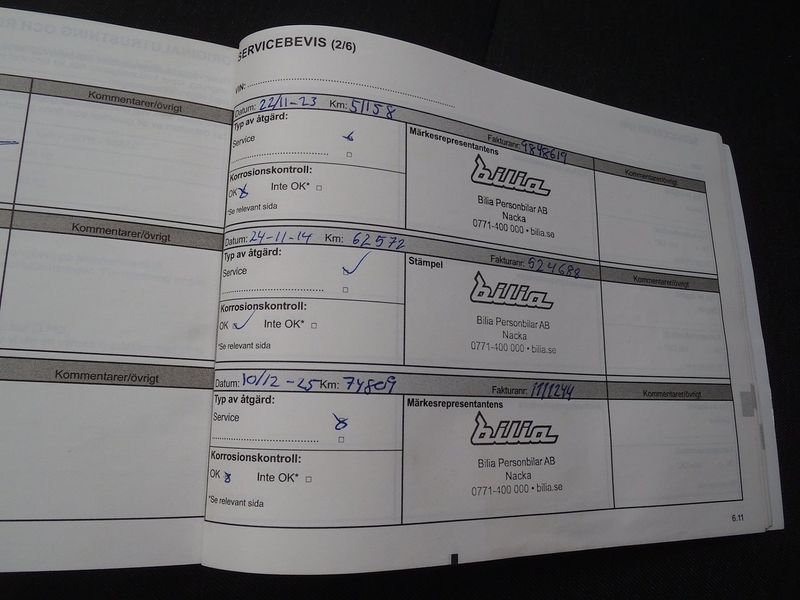 SERVICEBEVIS (2/6)
VIN:
Kommentarer/övrigt
Datum: 22/11-23 Km: 51158
Fakturanr: 4848619
Kommentarer/övrigt
Typ av åtgärd:
Service
Märkesrepresentantens
bilia
Bilia Personbilar AB
Nacka
0771-400 000 • bilia.se
Korrosionskontroll:
OK Inte OK*
*Se relevant sida
Kommentarer/övrigt
Datum: 24-11-14 Km: 62572
Fakturanr: 524688
Kommentarer/övrigt
Typ av åtgärd:
Service
Stämpel
bilia
Bilia Personbilar AB
Nacka
0771-400 000 • bilia.se
Korrosionskontroll:
OK Inte OK*
*Se relevant sida
Kommentarer/övrigt
Datum: 10/12-25 Km: 74809
Fakturanr: 1111244
Kommentarer/övrigt
Typ av åtgärd:
Service
Märkesrepresentantens
bilia
Bilia Personbilar AB
Nacka
0771-400 000 • bilia.se
Korrosionskontroll:
OK Inte OK*
*Se relevant sida
6.11